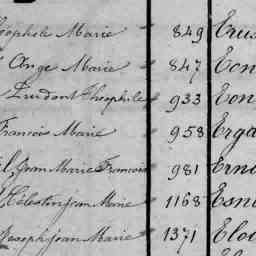 éophile Marie 849 Erus
Ange Marie 847 Eon
Prudent Théophile 933 Eon
Francois Marie 958 Erga
Jean Marie Francois 981 Erno
Célestin Jean Marie 1168 Esn
Joseph Jean Marie 1371 Eloi